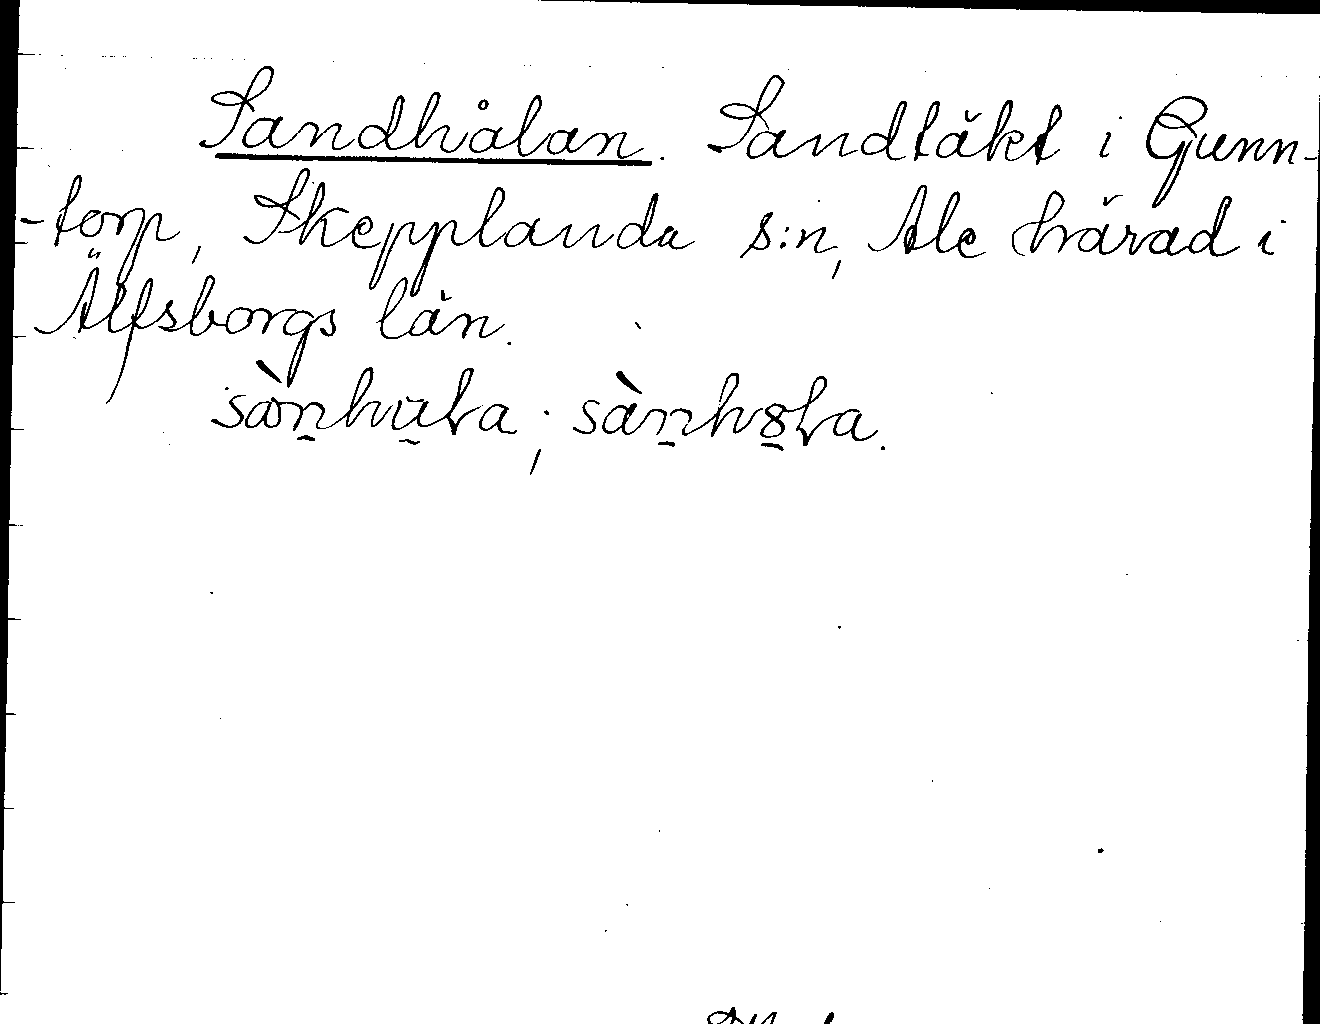 Sandhålan. Sandtäkt i Gunn-
-torp, Skepplanda s:n, Ale härad i
Älfsborgs län.
sàn̠hu̠ɫa; sàn̠h8̠ɫa.